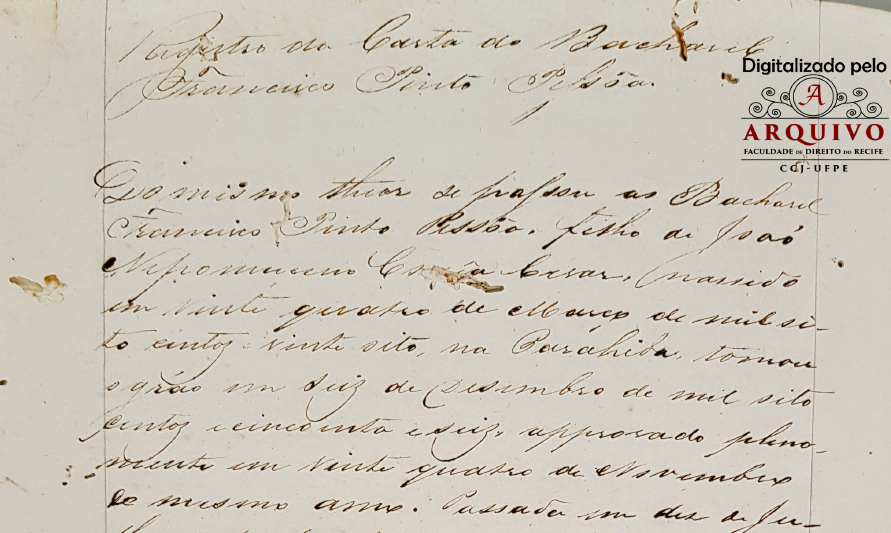 Registro da Carta do Bacharel
Francisco Pinto Pessôa.
Digitalizado pelo
A
ARQUIVO
FACULDADE DE DIREITO DO RECIFE
CCJ-UFPE
Do mismo theor se passou ao Bacharel
Francisco Pinto Pessôa, filho de João
Nepomuceno Cesar, nassido
em vinte quatro de Março de mil oi-
to centos e vinte oito, na Parahiba, tomou
o gráo em seiz de Desembro de mil oito
centos e cincoenta e seiz, approvado plena-
mente em vinte quatro de Novembro
do mesmo anno. Passada em dez de Ju-